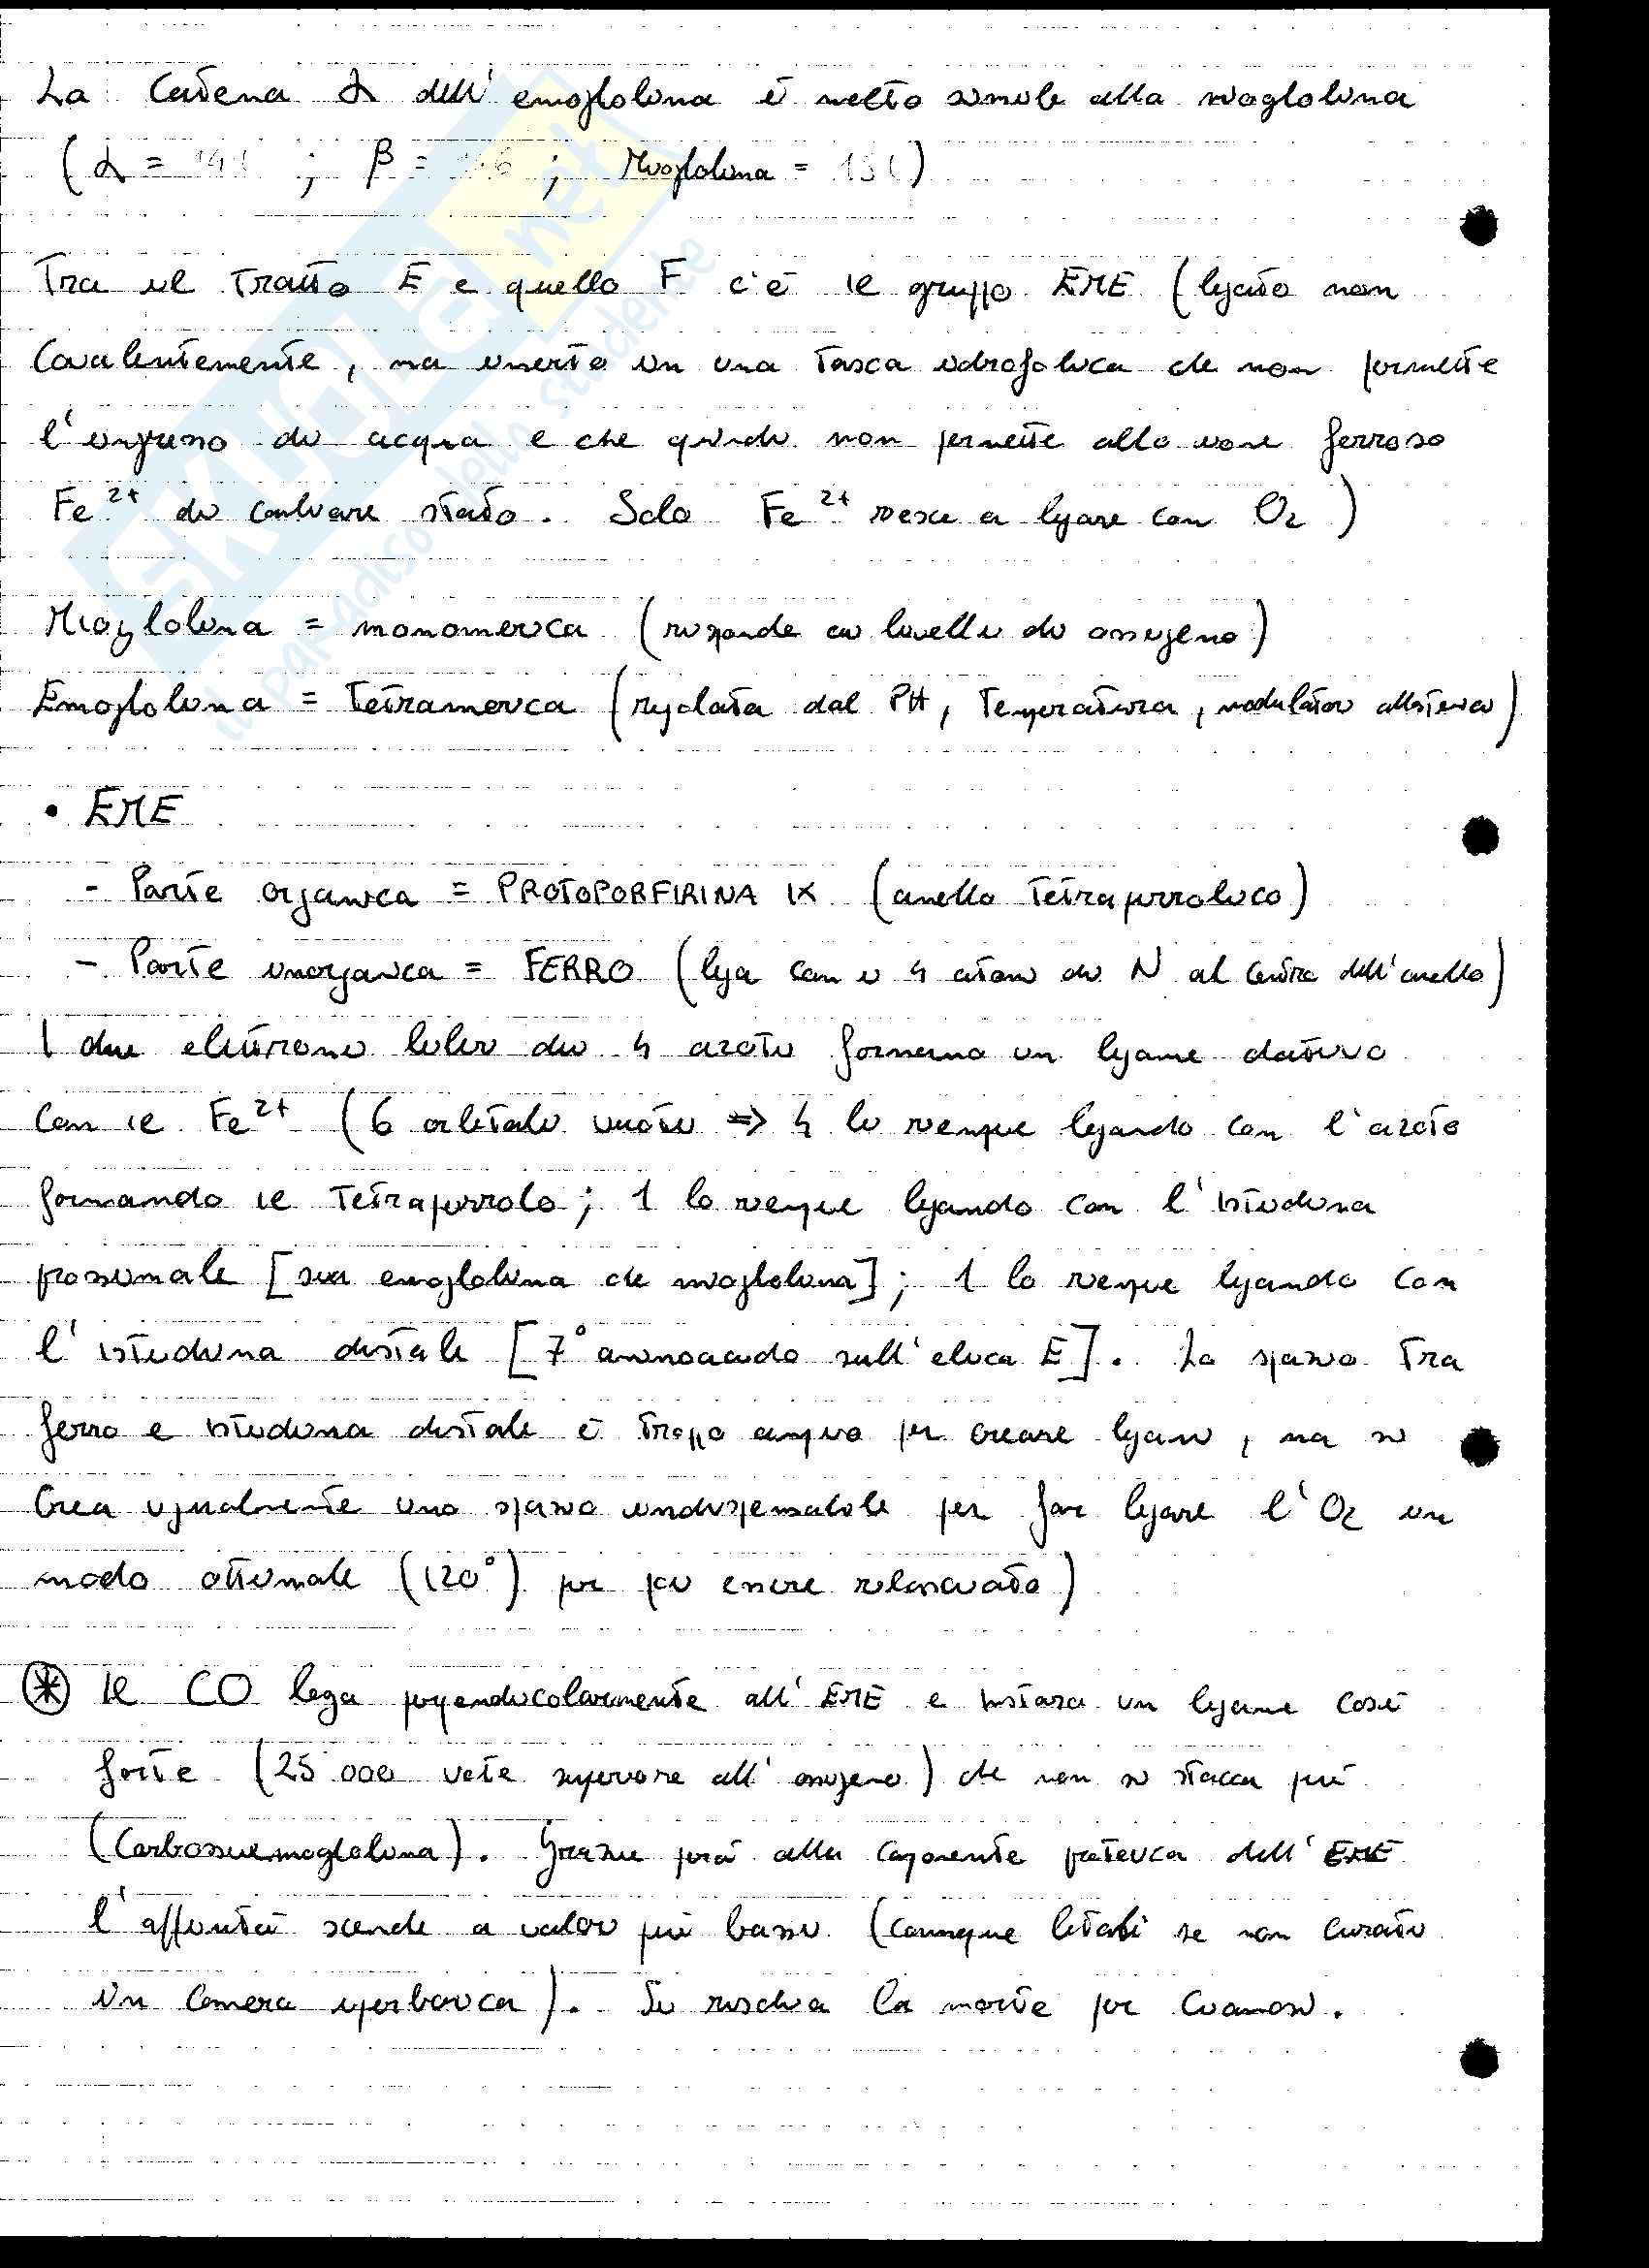 La Catena α dell'emoglobina è molto simile alla mioglobina
(α = 141 ; β = 146 ; Mioglobina = 15)
Tra il tratto E e quello F c'è il gruppo EME (legato non
covalentemente, ma inserito in una tasca idrofobica che non permette
l'ingresso di acqua e che quindi non permette allo ione ferroso
Fe²⁺ di cambiare stato. Solo Fe²⁺ riesce a legare con O₂)
Mioglobina = monomerica (risponde ai livelli di ossigeno)
Emoglobina = Tetramerica (regolata dal PH, Temperatura, modulatori allosterici)
• EME
- Parte organica = PROTOPORFIRINA IX (anello Tetrapirrolico)
- Parte inorganica = FERRO (lega con i 4 atomi di N al centro dell'anello)
I due elettroni liberi di 4 azoti formano un legame dativo
con il Fe²⁺ (6 orbitali vuoti ⇒ 4 li riempie legando con l'azoto
formando il Tetrapirrolo; 1 lo riempie legando con l'istidina
prossimale [sia emoglobina che mioglobina]; 1 lo riempie legando con
l'istidina distale [7° aminoacido sull'elica E]. Lo spazio tra
ferro e istidina distale è troppo ampio per creare legami, ma si
crea ugualmente uno spazio indispensabile per far legare l'O₂ in
modo ottimale (120°) per poi essere rilasciato)
(*) Il CO lega perpendicolarmente all'EME e instaura un legame così
forte (25 000 volte superiore all'ossigeno) che non si stacca più
(Carbossiemoglobina). Grazie però alla componente proteica dell'EME
l'affinità scende a valori più bassi (comunque letali se non curati
in camera iperbarica). Si rischia la morte per cianosi.
SKUOLA.net
il paradiso dello studente